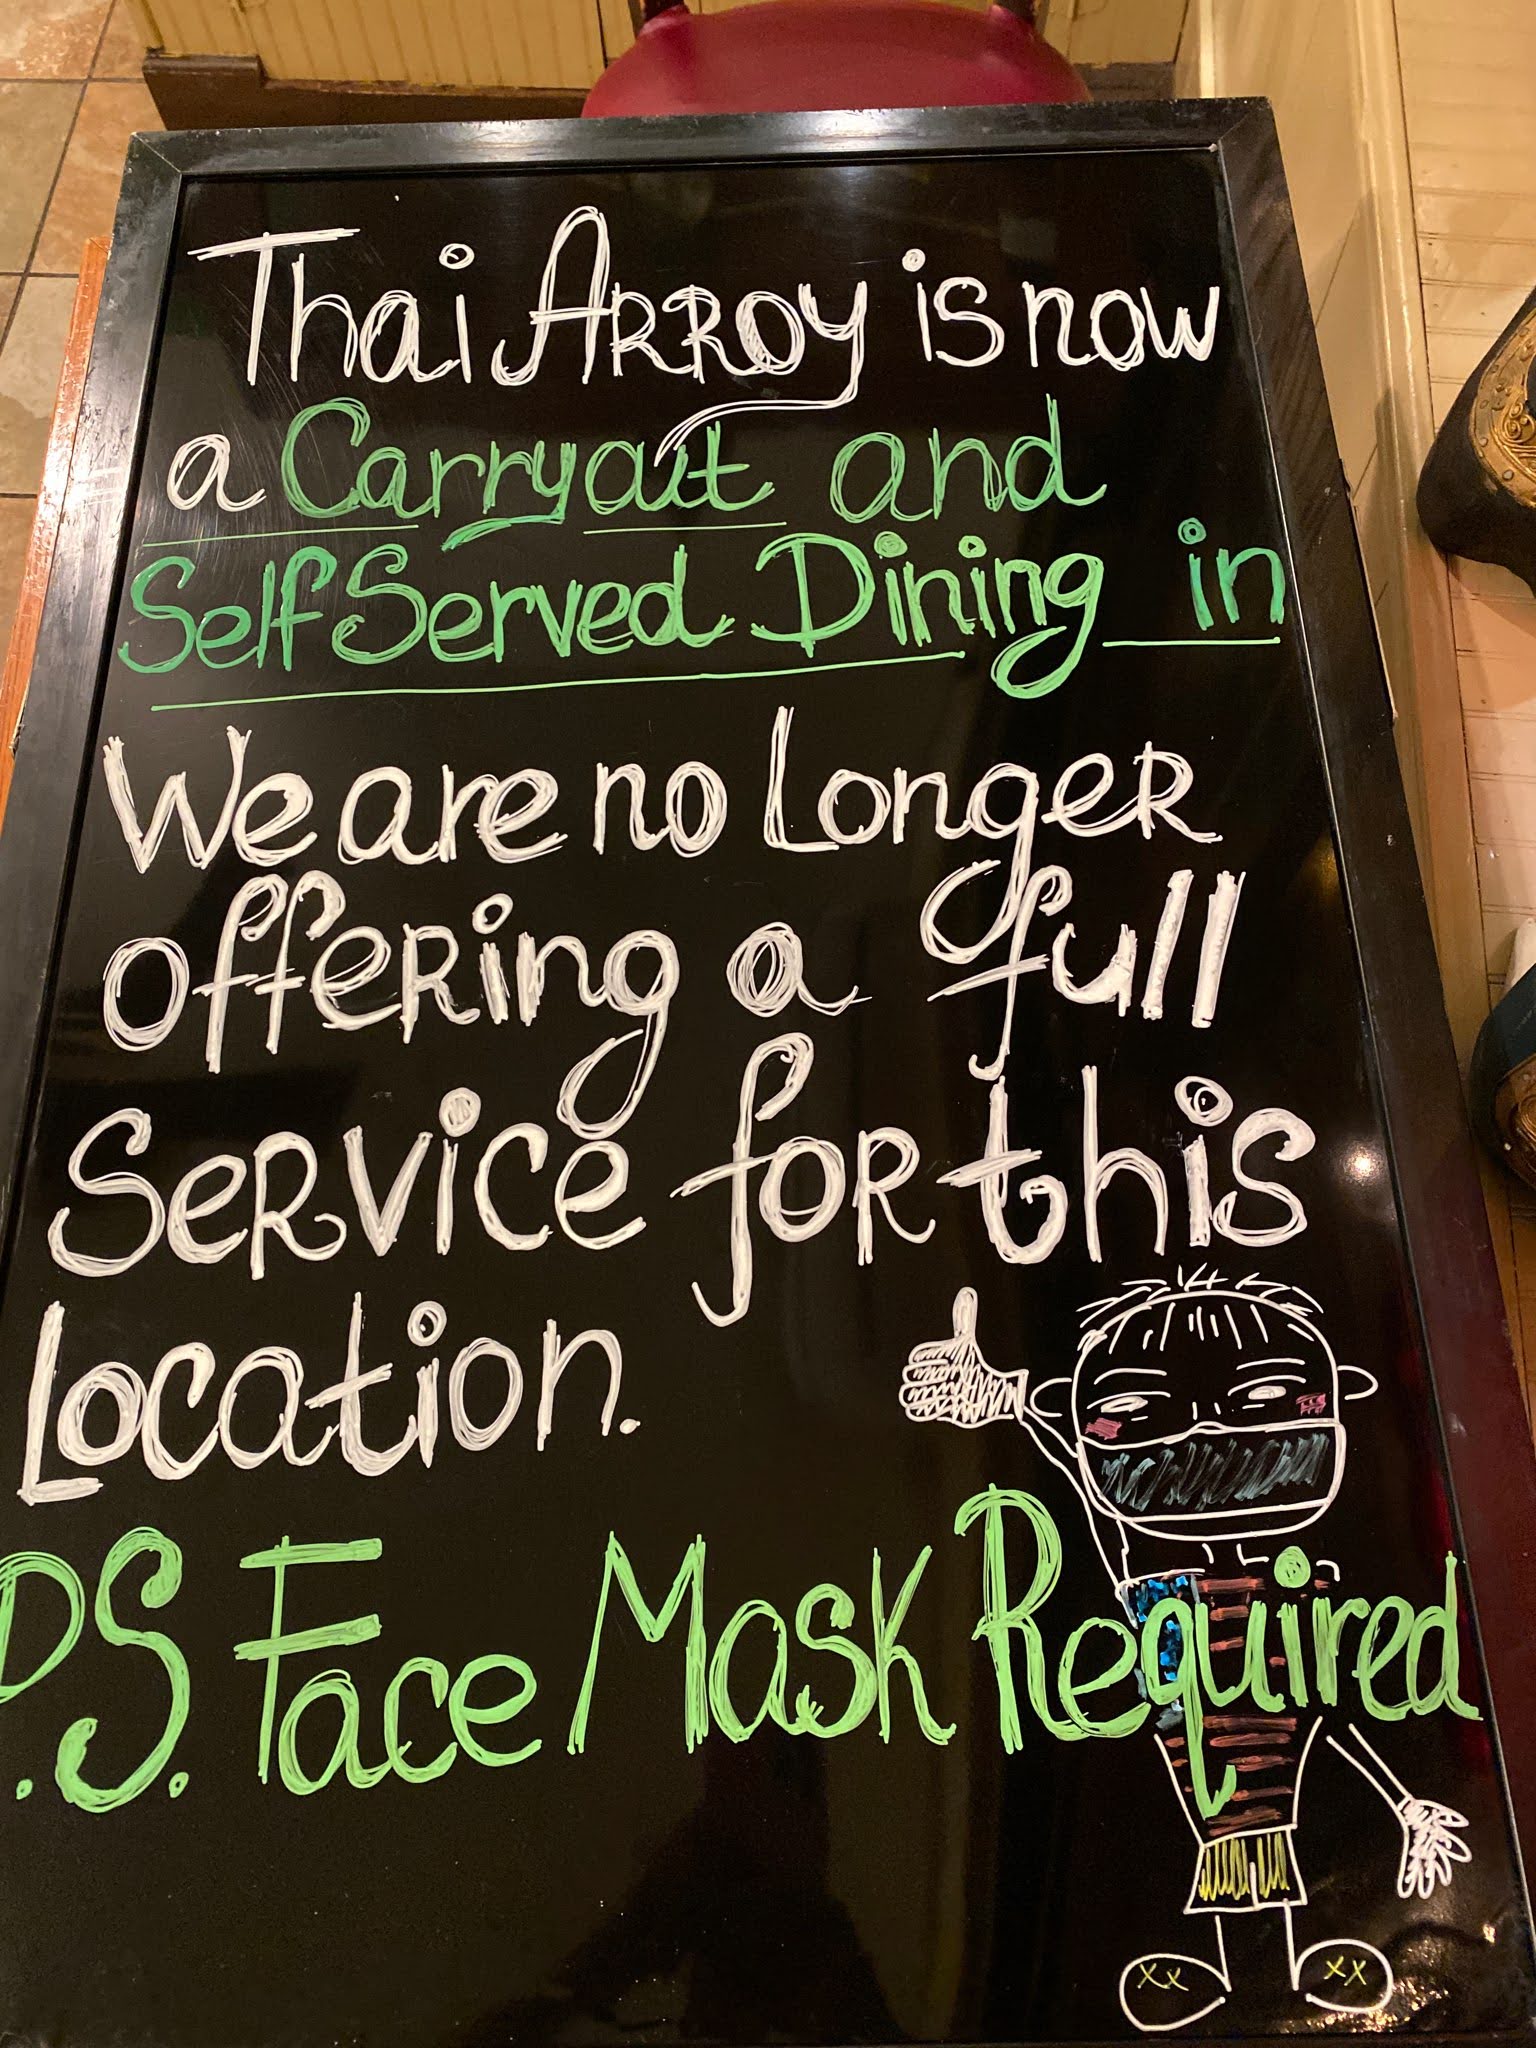 Thai ARROY is now
a Carryout and
Self Served Dining in
We are no Longer
offeRing a full
SeRvice foR this
Location.
P.S. Face Mask Required